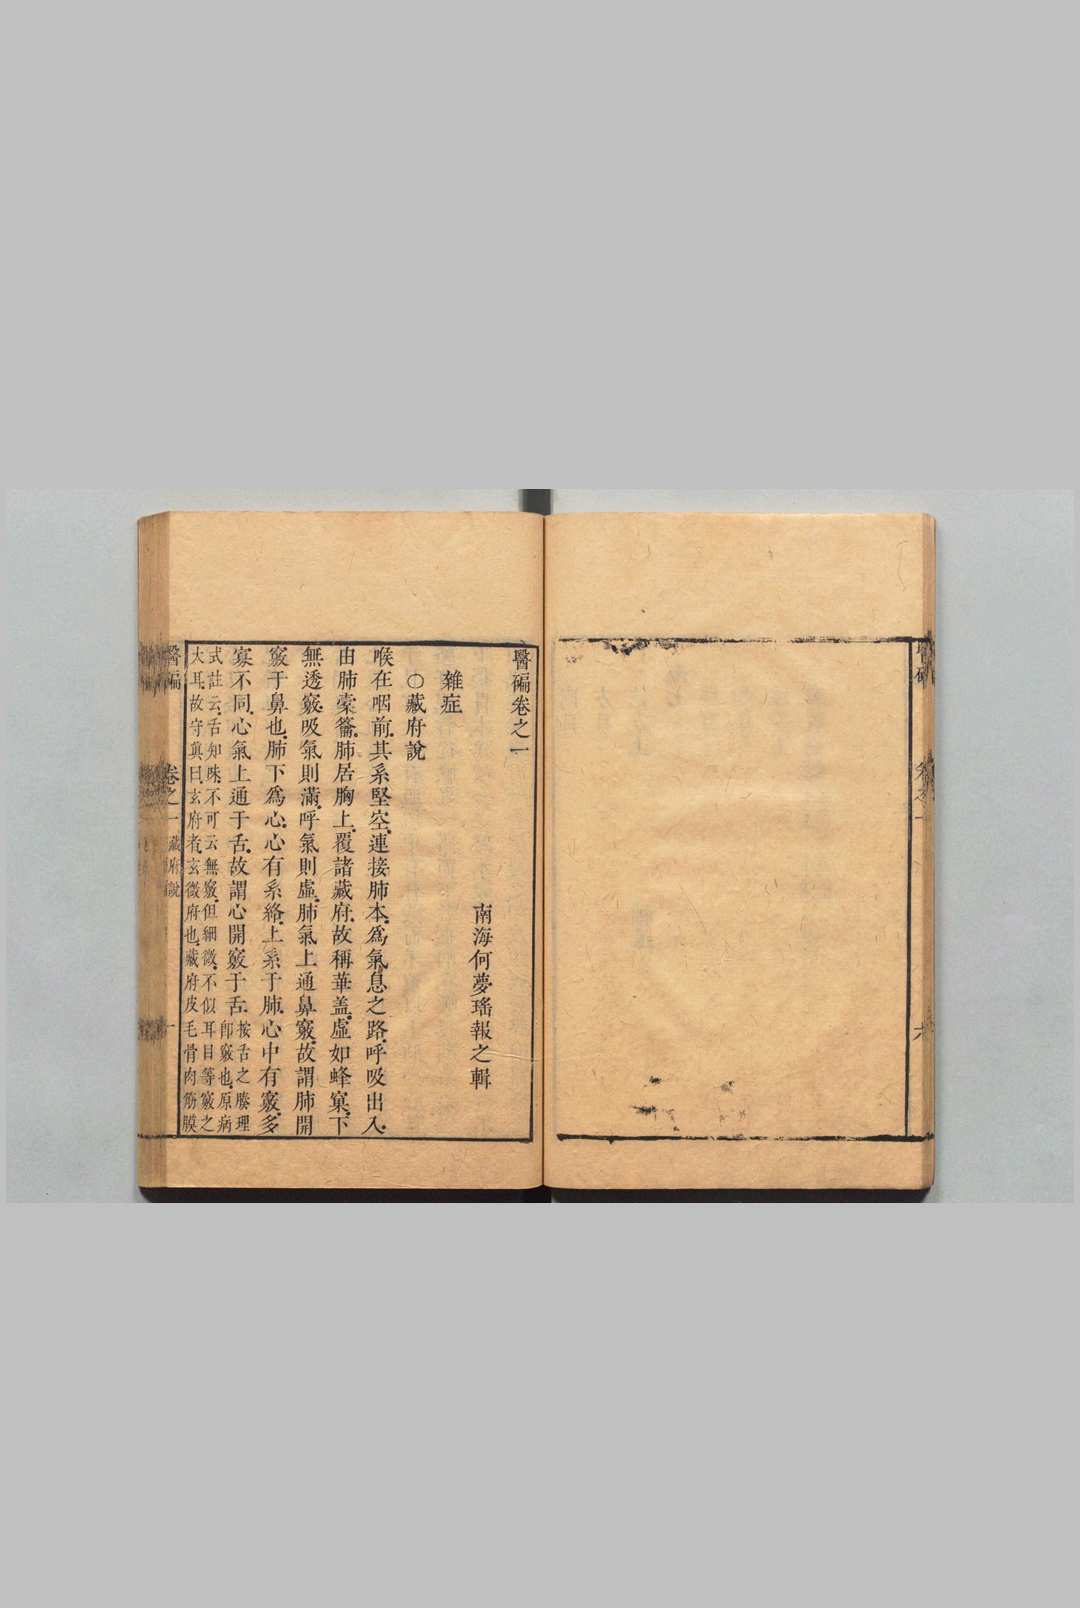 醫碥
卷之一
六
醫碥卷之一
南海何夢瑤報之輯
雜症
○藏府說
喉在咽前.其系堅空.連接肺本.爲氣息之路.呼吸出入.
由肺橐籥.肺居胸上.覆諸藏府.故稱華蓋.虛如蜂窠.下
無透竅.吸氣則滿.呼氣則虛.肺氣上通鼻竅.故謂肺開
竅于鼻也.肺下爲心.心有系絡.上系于肺.心中有竅.多
寡不同.心氣上通于舌.故謂心開竅于舌.按舌之腠理
卽竅也.原病
式註云.舌知味.不可云無竅.但細微.不似耳目等竅之
大耳.故守真曰.玄府者.玄微府也.藏府皮毛骨肉筋膜
醫碥
卷之一
藏府說
一